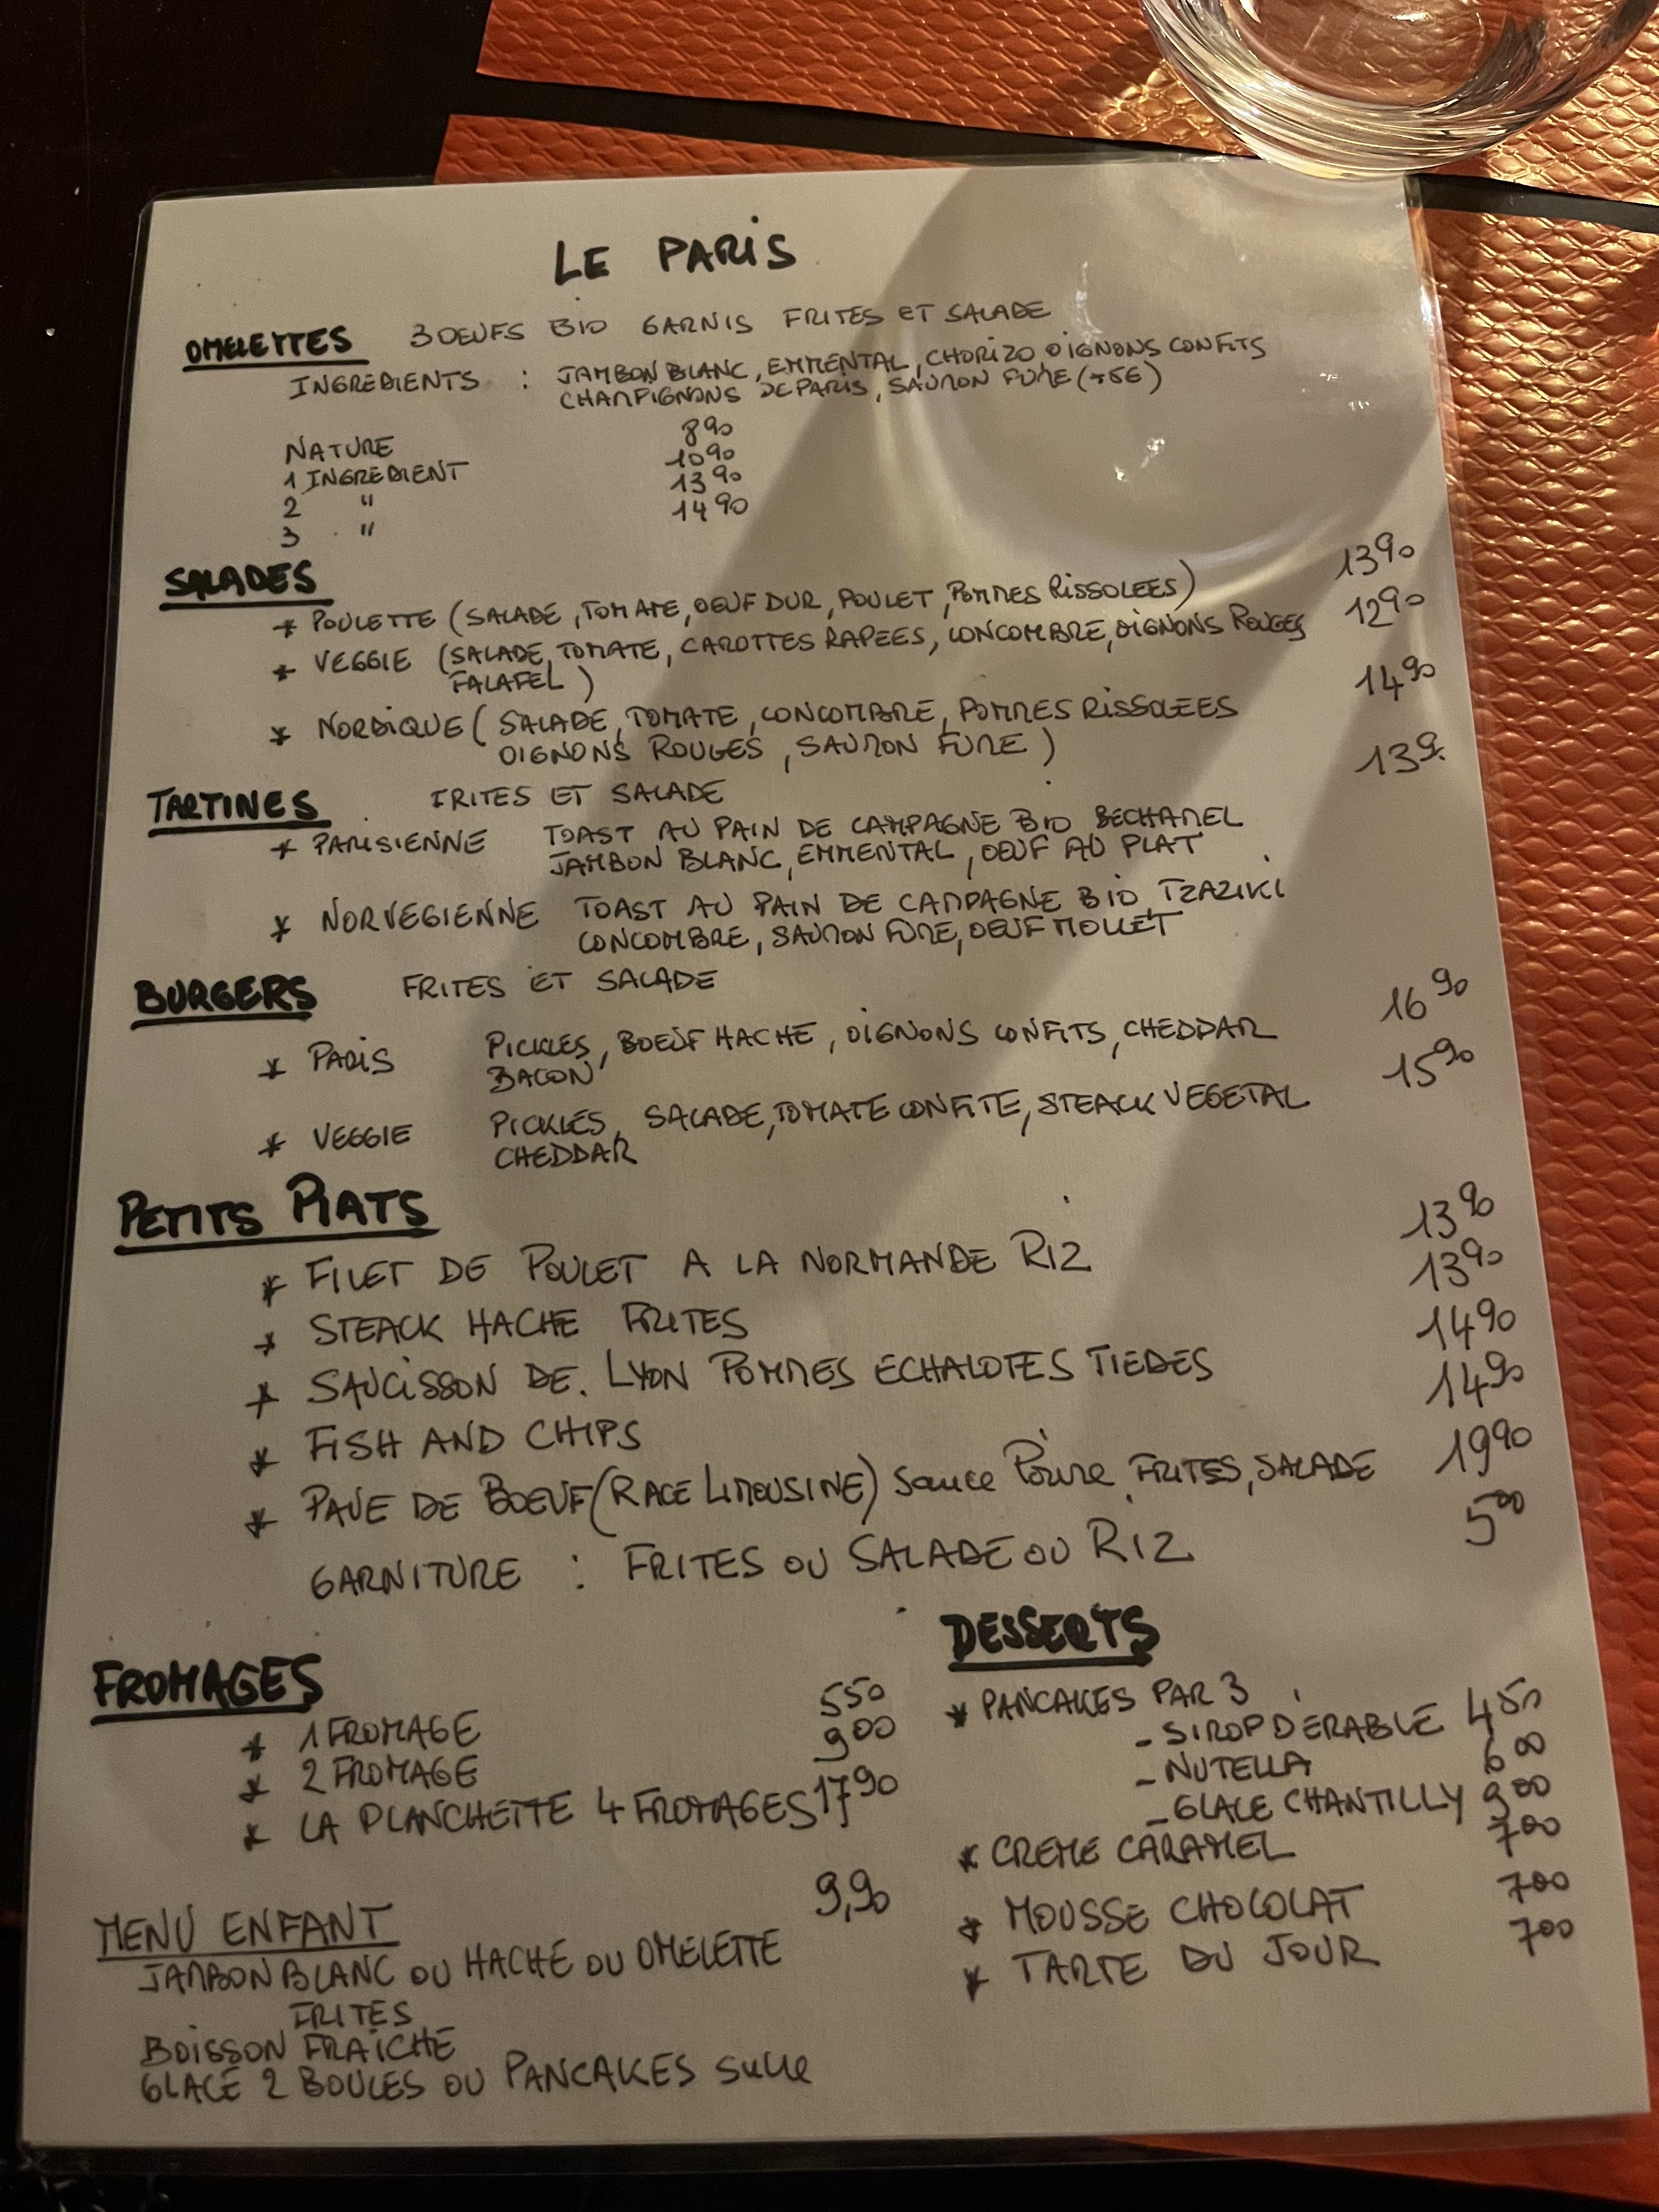 LE PARIS
OMELETTES 3 OEUFS BIO GARNIS FRITES ET SALADE
INGREDIENTS : JAMBON BLANC, EMMENTAL, CHORIZO OIGNONS CONFITS
CHAMPIGNONS DE PARIS, SAUMON FUME (+5€)
NATURE 8 90
1 INGREDIENT 10 90
2 " 13 90
3 " 14 90
SALADES
* POULETTE (SALADE, TOMATE, OEUF DUR, POULET, POMMES RISSOLEES) 13 90
* VEGGIE (SALADE, TOMATE, CAROTTES RAPEES, CONCOMBRE, OIGNONS ROUGES 12 90
FALAFEL)
* NORDIQUE (SALADE, TOMATE, CONCOMBRE, POMMES RISSOLEES 14 90
OIGNONS ROUGES, SAUMON FUME)
TARTINES FRITES ET SALADE 13 9.
* PARISIENNE TOAST AU PAIN DE CAMPAGNE BIO BECHAMEL
JAMBON BLANC, EMMENTAL, OEUF AU PLAT
* NORVEGIENNE TOAST AU PAIN DE CAMPAGNE BIO TZAZIKI
CONCOMBRE, SAUMON FUME, OEUF MOLLET
BURGERS FRITES ET SALADE
* PARIS PICKLES, BOEUF HACHE, OIGNONS CONFITS, CHEDDAR 16 90
BACON
* VEGGIE PICKLES, SALADE, TOMATE CONFITE, STEACK VEGETAL 15 90
CHEDDAR
PETITS PLATS
* FILET DE POULET A LA NORMANDE RIZ 13 90
* STEACK HACHE FRITES 13 90
* SAUCISSON DE. LYON POMMES ECHALOTES TIEDES 14 90
* FISH AND CHIPS 14 90
* PAVE DE BOEUF (RACE LIMOUSINE) sauce Poivre, FRITES, SALADE 19 90
GARNITURE : FRITES OU SALADE OU RIZ 5 00
FROMAGES
* 1 FROMAGE 5 50
* 2 FROMAGE 9 00
* LA PLANCHETTE 4 FROMAGES 17 90
MENU ENFANT 9,90
JAMBON BLANC OU HACHE OU OMELETTE
FRITES
BOISSON FRAÎCHE
GLACE 2 BOULES OU PANCAKES sucre
DESSERTS
* PANCAKES PAR 3
- SIROP D'ERABLE 4 50
- NUTELLA 6 00
- GLACE CHANTILLY 9 00
* CREME CARAMEL 7 00
* MOUSSE CHOCOLAT 7 00
* TARTE DU JOUR 7 00